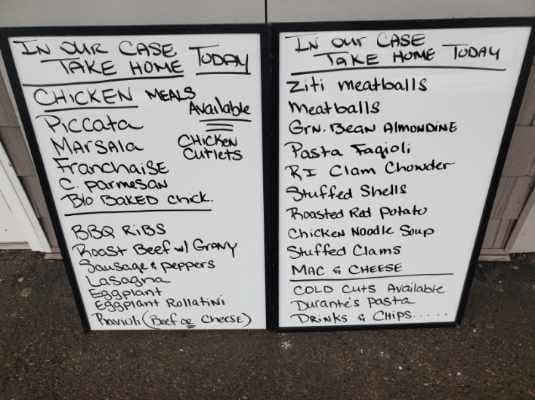 IN OUR CASE
TAKE HOME TODAY
CHICKEN MEALS
Available
Piccata
Chicken
Cutlets
Marsala
Franchaise
C. Parmesan
B/O BAKED Chick.
BBQ RiBS
Roast Beef w/ Gravy
Sausage & peppers
Lasagna
Eggplant
Eggplant Rollatini
Raviuli (Beef or Cheese)
IN OUR CASE
TAKE HOME TODAY
Ziti meatballs
Meatballs
Grn. Bean Almondine
Pasta Fagioli
RI Clam Chowder
Stuffed Shells
Roasted Red Potato
Chicken Noodle Soup
Stuffed Clams
MAC & CHEESE
COLD CUTS Available
Durante's Pasta
DRINKS & CHIPS.....